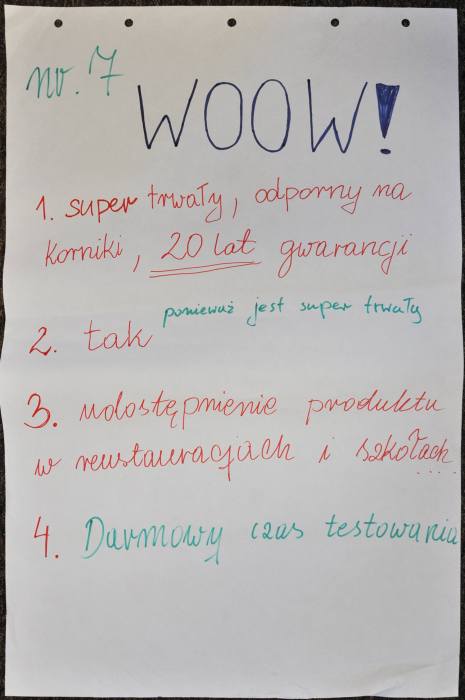 nr. 7
WOOW!
1. super trwały, odporny na
korniki, 20 lat gwarancji
ponieważ jest super trwały
2. tak
3. udostępnienie produktu
w reustauracjach i szkołach
....
4. Darmowy czas testowania